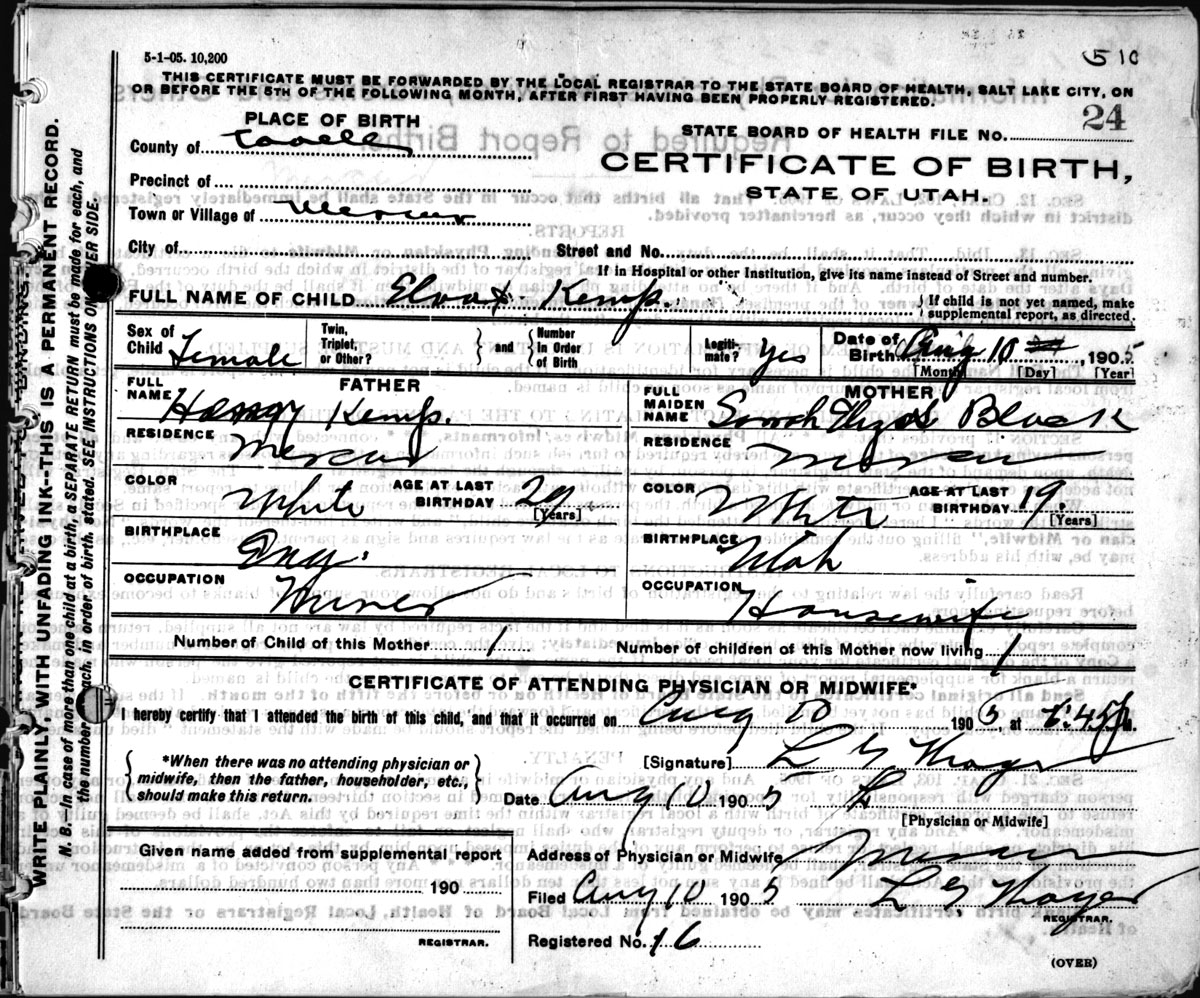 5-1-05. 10,200
510
THIS CERTIFICATE MUST BE FORWARDED BY THE LOCAL REGISTRAR TO THE STATE BOARD OF HEALTH, SALT LAKE CITY, ON
OR BEFORE THE 5TH OF THE FOLLOWING MONTH, AFTER FIRST HAVING BEEN PROPERLY REGISTERED.
PLACE OF BIRTH
STATE BOARD OF HEALTH FILE NO. 24
County of Tooele
CERTIFICATE OF BIRTH,
STATE OF UTAH.
Precinct of
Town or Village of Mercur
City of Street and No.
If in Hospital or other Institution, give its name instead of Street and number.
FULL NAME OF CHILD Kemp.
If child is not yet named, make
supplemental report, as directed.
Sex of Child Female
Twin, Triplet, or Other?
and Number in Order of Birth
Legiti- mate? Yes
Date of Birth Aug 10 1905
[Month] [Day] [Year]
FATHER
MOTHER
FULL NAME Kemp.
FULL MAIDEN NAME Sarah Black
RESIDENCE Mercur
RESIDENCE Mercur
COLOR White AGE AT LAST BIRTHDAY 29 [Years]
COLOR White AGE AT LAST BIRTHDAY 19. [Years]
BIRTHPLACE Eng.
BIRTHPLACE Utah
OCCUPATION Miner
OCCUPATION Housewife
Number of Child of this Mother 1
Number of children of this Mother now living 1
CERTIFICATE OF ATTENDING PHYSICIAN OR MIDWIFE.
I hereby certify that I attended the birth of this child, and that it occurred on Aug 10 1905, at :45 p.
*When there was no attending physician or
midwife, then the father, householder, etc.,
should make this return.
[Signature] L G Thayer
Date Aug 10 1905
[Physician or Midwife]
Given name added from supplemental report
190
REGISTRAR.
Address of Physician or Midwife Mercur
Filed Aug 10 1905 L G Thayer
REGISTRAR.
Registered No. 16
(OVER)
WRITE PLAINLY, WITH UNFADING INK--THIS IS A PERMANENT RECORD.
N. B.—In case of more than one child at a birth, a SEPARATE RETURN must be made for each, and
the number of each, in order of birth, stated. SEE INSTRUCTIONS ON OTHER SIDE.